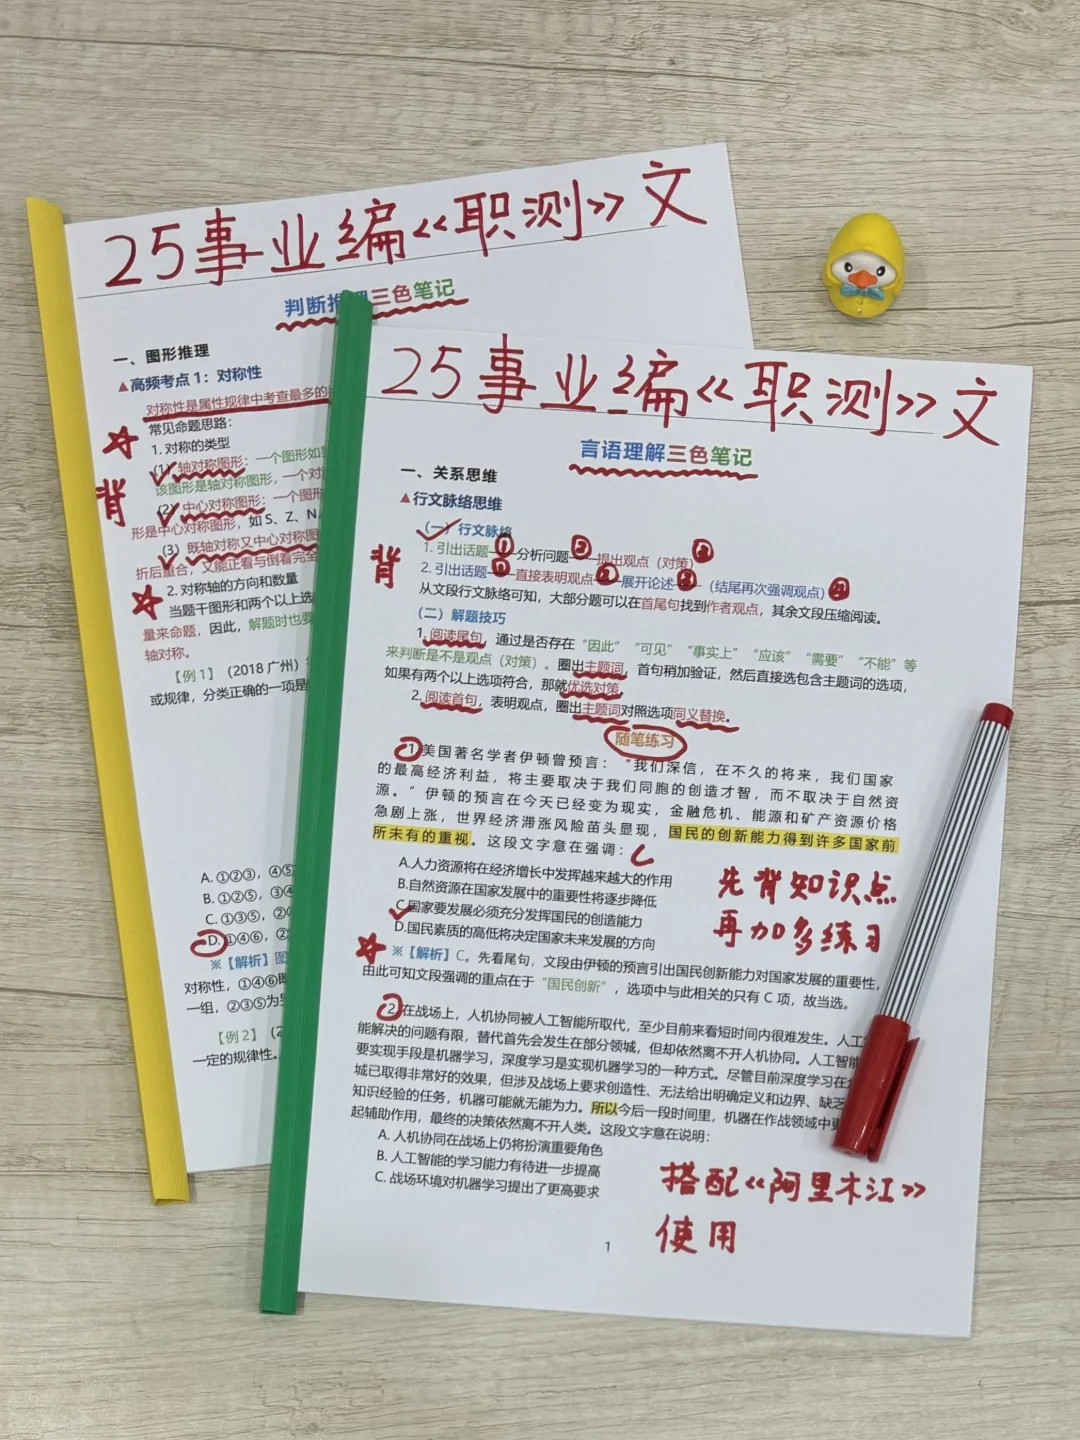 25事业编《职测》文
判断推理三色笔记
一、图形推理
▲高频考点1：对称性
对称性是属性规律中考查最多的
常见命题思路：
1. 对称的类型
(1) 轴对称图形：一个图形如
该图形是轴对称图形，一个对
背
(2) 中心对称图形：一个图形
形是中心对称图形，如 S、Z、N
(3) 既轴对称又中心对称图
折后重合，又能正看与倒看完全
2. 对称轴的方向和数量
当题干图形和两个以上选
量来命题，因此，解题时也要
轴对称。
【例 1】（2018 广州）
或规律，分类正确的一项是
A. ①②③，④⑤
B. ①②⑤，③④
C. ①③⑤，②
D. ①④⑥，②
※【解析】
对称性，①④⑥
一组，②③⑤为
【例 2】
一定的规律性。
25事业编《职测》文
言语理解三色笔记
一、关系思维
▲行文脉络思维
（一）行文脉络
1. 引出话题①—分析问题②—提出观点（对策）③
背
2. 引出话题①—直接表明观点②—展开论述③—（结尾再次强调观点）④
从文段行文脉络可知，大部分题可以在首尾句找到作者观点，其余文段压缩阅读。
（二）解题技巧
1. 阅读尾句，通过是否存在“因此”“可见”“事实上”“应该”“需要”“不能”等
来判断是不是观点（对策）。圈出主题词，首句稍加验证，然后直接选包含主题词的选项，
如果有两个以上选项符合，那就优选对策。
2. 阅读首句，表明观点，圈出主题词对照选项同义替换。
随笔练习
1 美国著名学者伊顿曾预言：“我们深信，在不久的将来，我们国家
的最高经济利益，将主要取决于我们同胞的创造才智，而不取决于自然资
源。”伊顿的预言在今天已经变为现实，金融危机、能源和矿产资源价格
急剧上涨，世界经济滞涨风险苗头显现，国民的创新能力得到许多国家前
所未有的重视。这段文字意在强调：C
A.人力资源将在经济增长中发挥越来越大的作用
B.自然资源在国家发展中的重要性将逐步降低
C.国家要发展必须充分发挥国民的创造能力
D.国民素质的高低将决定国家未来发展的方向
先背知识点
再加多练习
※【解析】C。先看尾句，文段由伊顿的预言引出国民创新能力对国家发展的重要性，
由此可知文段强调的重点在于“国民创新”，选项中与此相关的只有 C 项，故当选。
2 在战场上，人机协同被人工智能所取代，至少目前来看短时间内很难发生。人工
能解决的问题有限，替代首先会发生在部分领城，但却依然离不开人机协同。人工智能
要实现手段是机器学习，深度学习是实现机器学习的一种方式。尽管目前深度学习在
城已取得非常好的效果，但涉及战场上要求创造性、无法给出明确定义和边界、缺乏
知识经验的任务，机器可能就无能为力。所以今后一段时间里，机器在作战领域中更
起辅助作用，最终的决策依然离不开人类。这段文字意在说明：
A. 人机协同在战场上仍将扮演重要角色
B. 人工智能的学习能力有待进一步提高
C. 战场环境对机器学习提出了更高要求
搭配《阿里木江》
使用
1